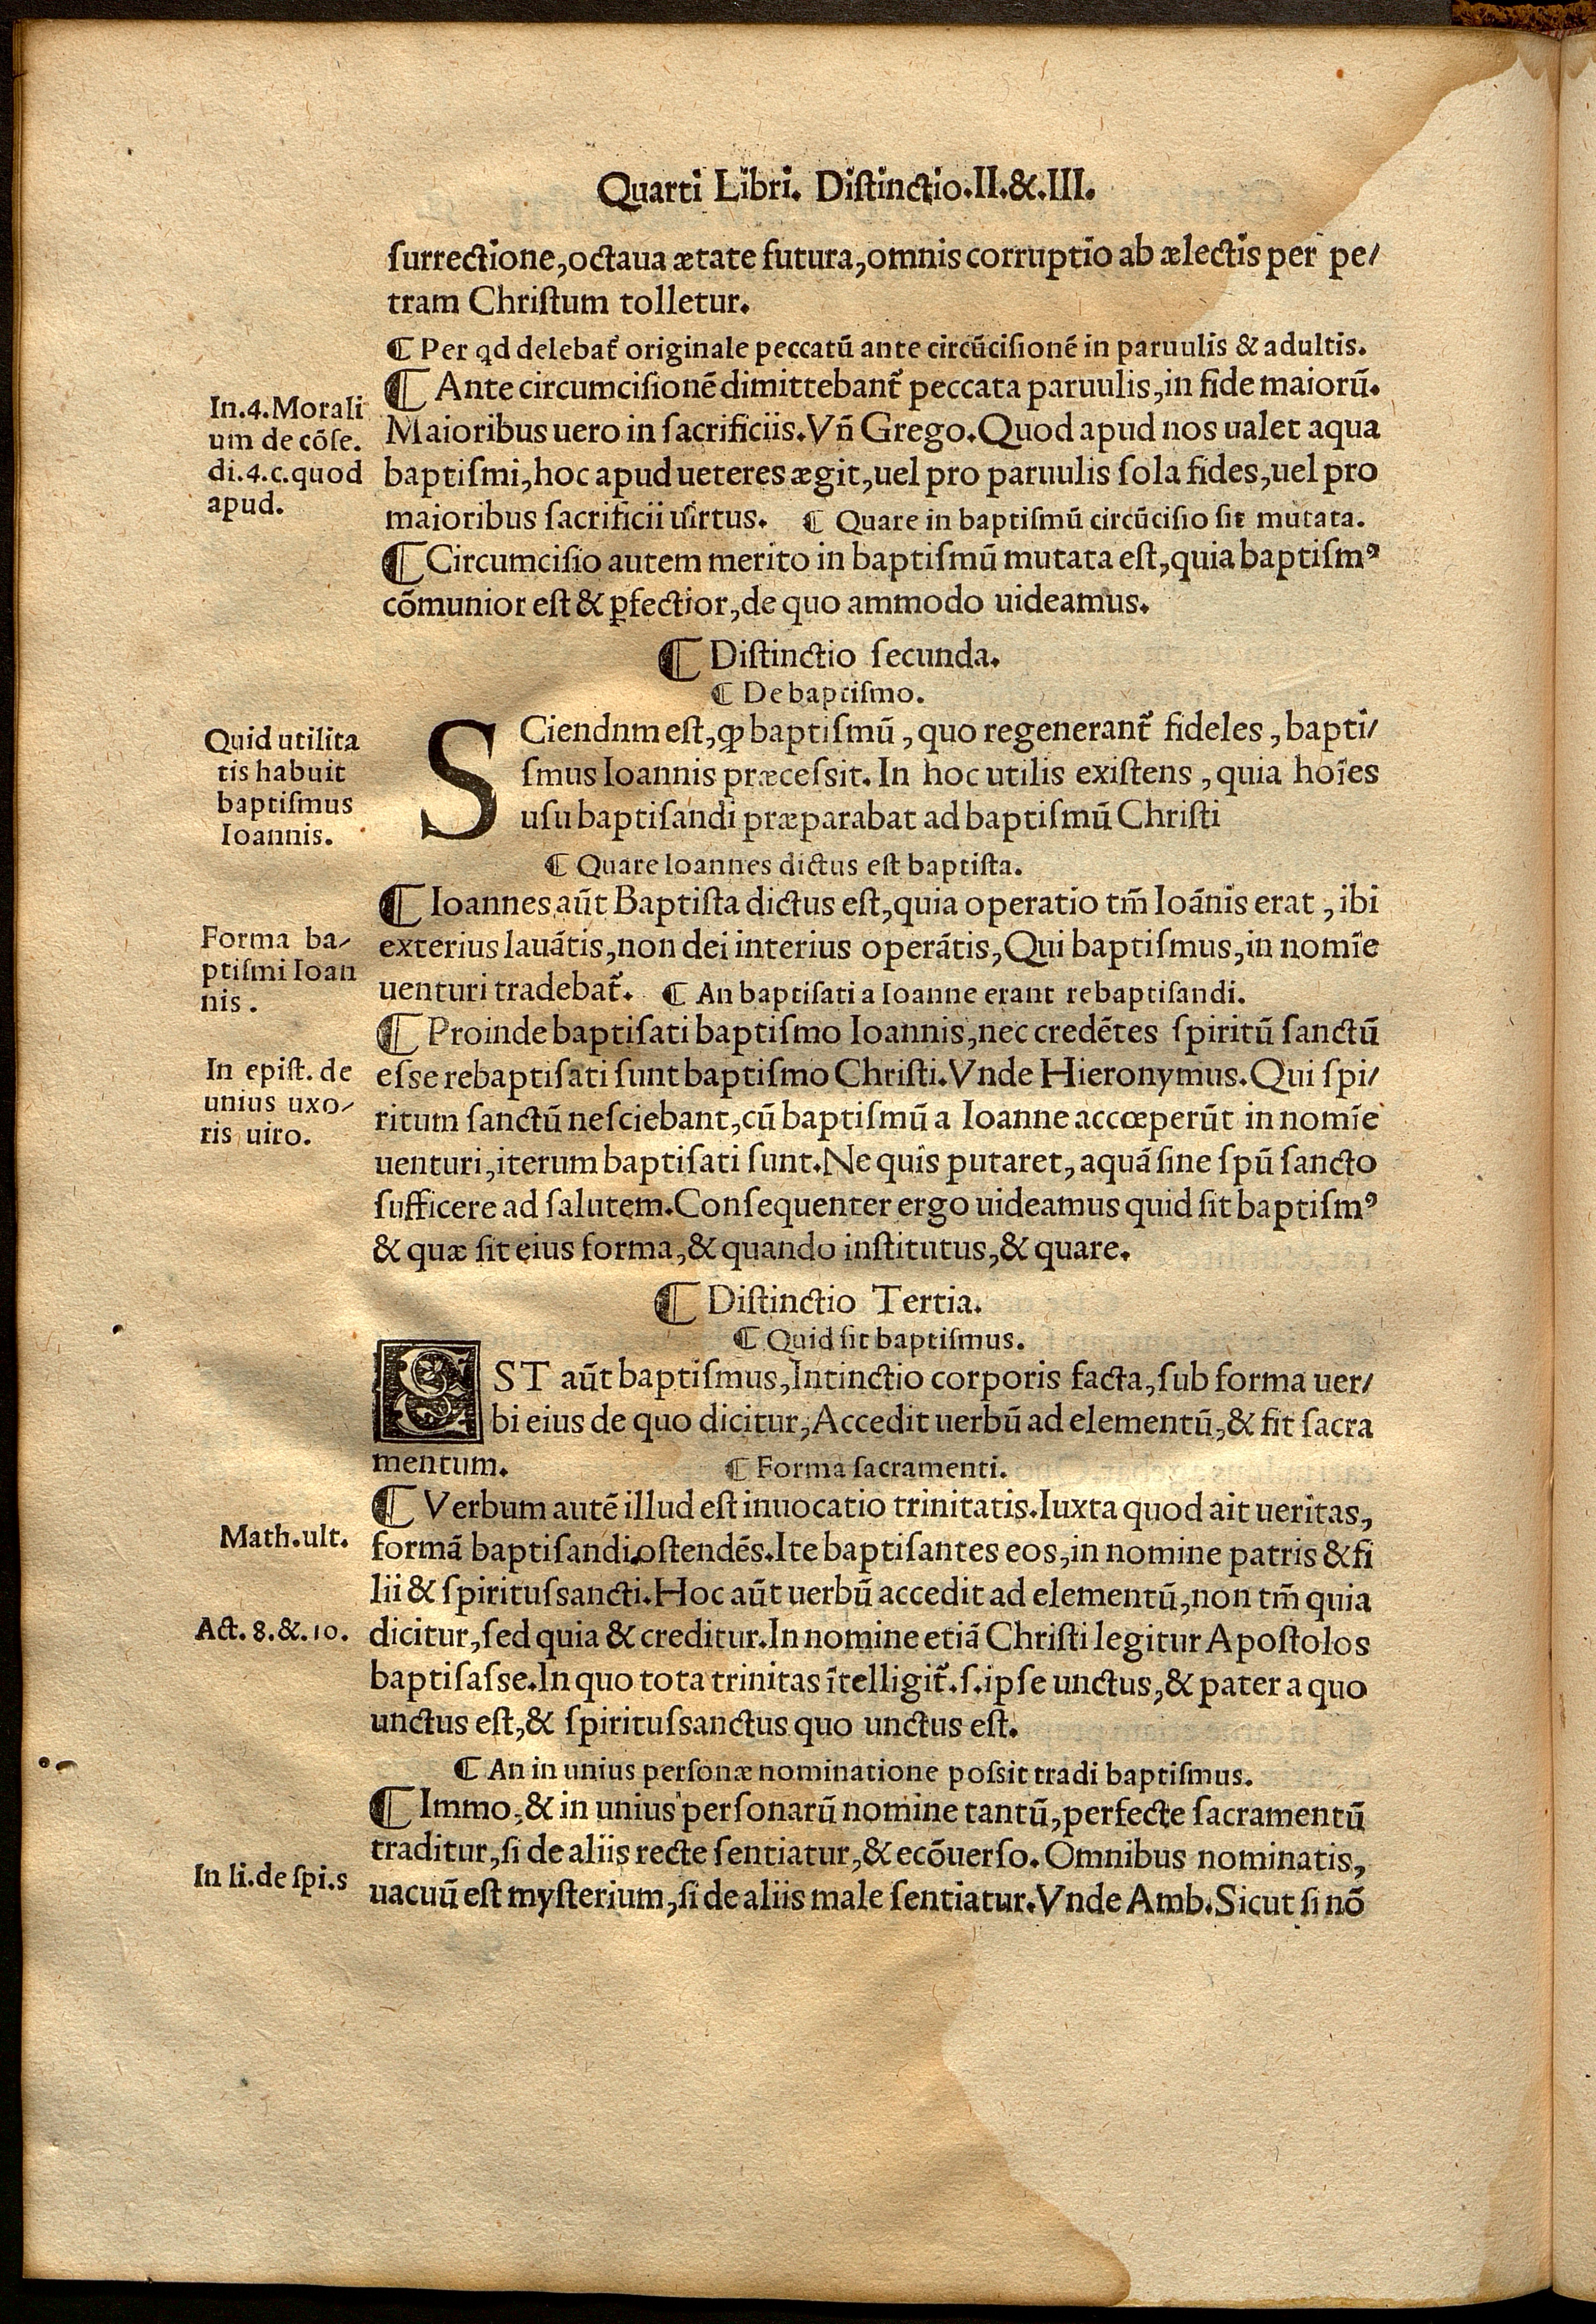 Quarti Libri. Distinctio.II.&.III.
surrectione,octaua ætate futura,omnis corruptio ab ælectis per pe/
tram Christum tolletur.
¶ Per qd delebat᷑ originale peccatū ante circūcisionē in paruulis & adultis.
¶ Ante circumcisionē dimittebant᷑ peccata paruulis,in fide maiorū.
In.4.Morali
um de cōse.
di.4.c.quod
apud.
Maioribus uero in sacrificiis.Vn̄ Grego.Quod apud nos ualet aqua
baptismi,hoc apud ueteres ægit,uel pro paruulis sola fides,uel pro
maioribus sacrificii uirtus. ¶ Quare in baptismū circūcisio sit mutata.
¶ Circumcisio autem merito in baptismū mutata est,quia baptismꝰ
cōmunior est & ꝑfectior,de quo ammodo uideamus.
¶ Distinctio secunda.
¶ De baptismo.
Quid utilita
tis habuit
baptismus
Ioannis.
SCiendnm est,ꝙ baptismū,quo regenerant᷑ fideles,bapti/
smus Ioannis præcessit.In hoc utilis existens,quia hoīes
usu baptisandi præparabat ad baptismū Christi
¶ Quare Ioannes dictus est baptista.
¶ Ioannes aūt Baptista dictus est,quia operatio tm̄ Ioānis erat,ibi
Forma ba/
ptismi Ioan
nis.
exterius lauātis,non dei interius operātis,Qui baptismus,in nomīe
uenturi tradebat᷑. ¶ An baptisati a Ioanne erant rebaptisandi.
¶ Proinde baptisati baptismo Ioannis,nec credētes spiritū sanctū
In epist. de
unius uxo/
ris uiro.
esse rebaptisati sunt baptismo Christi.Vnde Hieronymus.Qui spi/
ritum sanctū nesciebant,cū baptismū a Ioanne accœperūt in nomīe
uenturi,iterum baptisati sunt.Ne quis putaret,aquā sine spū sancto
sufficere ad salutem.Consequenter ergo uideamus quid sit baptismꝰ
& quæ sit eius forma,& quando institutus,& quare.
¶ Distinctio Tertia.
¶ Quid sit baptismus.
EST aūt baptismus,Intinctio corporis facta,sub forma uer/
bi eius de quo dicitur,Accedit uerbū ad elementū,& fit sacra
mentum. ¶ Forma sacramenti.
¶ Verbum autē illud est inuocatio trinitatis.Iuxta quod ait ueritas,
Math.ult.
formā baptisandi,ostendēs.Ite baptisantes eos,in nomine patris & fi
lii & spiritussancti.Hoc aūt uerbū accedit ad elementū,non tm̄ quia
Act.8.&.10.
dicitur,sed quia & creditur.In nomine etiā Christi legitur Apostolos
baptisasse.In quo tota trinitas ītelligit᷑.s.ipse unctus,& pater a quo
unctus est,& spiritussanctus quo unctus est.
¶ An in unius personæ nominatione possit tradi baptismus.
¶ Immo,& in unius personarū nomine tantū,perfecte sacramentū
traditur,si de aliis recte sentiatur,& ecōuerso.Omnibus nominatis,
In li.de spi.s
uacuū est mysterium,si de aliis male sentiatur.Vnde Amb.Sicut si nō